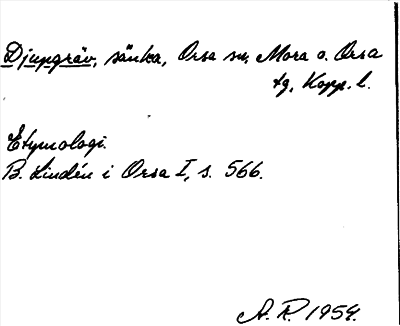 Djupgräv, sänka, Orsa sn, Mora o. Orsa
tg, Kopp. l.
Etymologi.
B. Lindén i Orsa I, s. 566.
A. R. 1954.